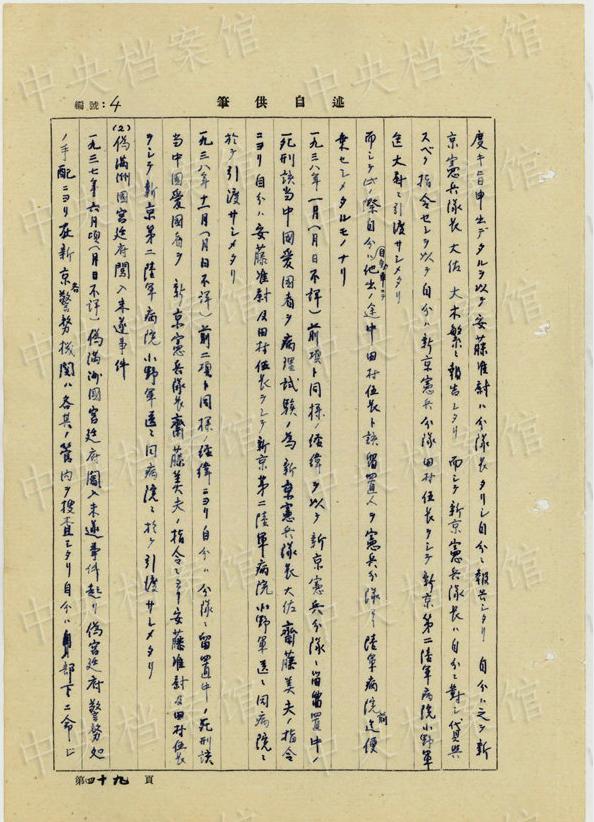 中央档案馆
編號:4
筆供自述
度キ旨申出デタルヲ以テ安藤准尉ハ分隊長タリシ自分ニ報告シタリ 自分ハ之ヲ新
京憲兵隊長大佐大木繁ニ報告シタリ 而シテ新京憲兵隊長ハ自分ニ對シ貸與
スベク指令セシヲ以テ自分ハ新京憲兵分隊田村伍長ヲシテ新京第二陸軍病院小野軍
医大尉ニ引渡サシメタリ
而シテ此ノ際自分ハ自動車ニテ他出ノ途中田村伍長ト該留置人ヲ憲兵分隊ヨリ陸軍病院前迄便
乗セシメタルモノナリ
一九三八年一月(月日不詳)前項ト同様ノ経緯ヲ以テ新京憲兵分隊ニ留置中ノ
死刑該当中国愛国者ヲ病理試験ノ為新京憲兵隊長大佐齋藤美夫ノ指令
ニヨリ自分ハ安藤准尉及田村伍長ヲシテ新京第二陸軍病院小野軍医ニ同病院ニ
於テ引渡サシメタリ
一九三八年十一月(月日不詳)前二項ト同様ノ経緯ニヨリ自分ハ分隊ニ留置中ノ死刑該
当中国愛国者ヲ新京憲兵隊長齋藤美夫ノ指令ニヨリ安藤准尉及田村伍長
ヲシテ新京第二陸軍病院小野軍医ニ同病院ニ於テ引渡サシメタリ
(2)偽満洲國宮廷府闖入未遂事件
一九三七年六月頃(月日不詳)偽満洲國宮廷府闖入未遂事件起リ偽宮廷府警務処
ノ手配ニヨリ在新京各警務機関ハ各其ノ管内ヲ捜査シタリ自分ハ自部下ニ命ジ
第四十九頁